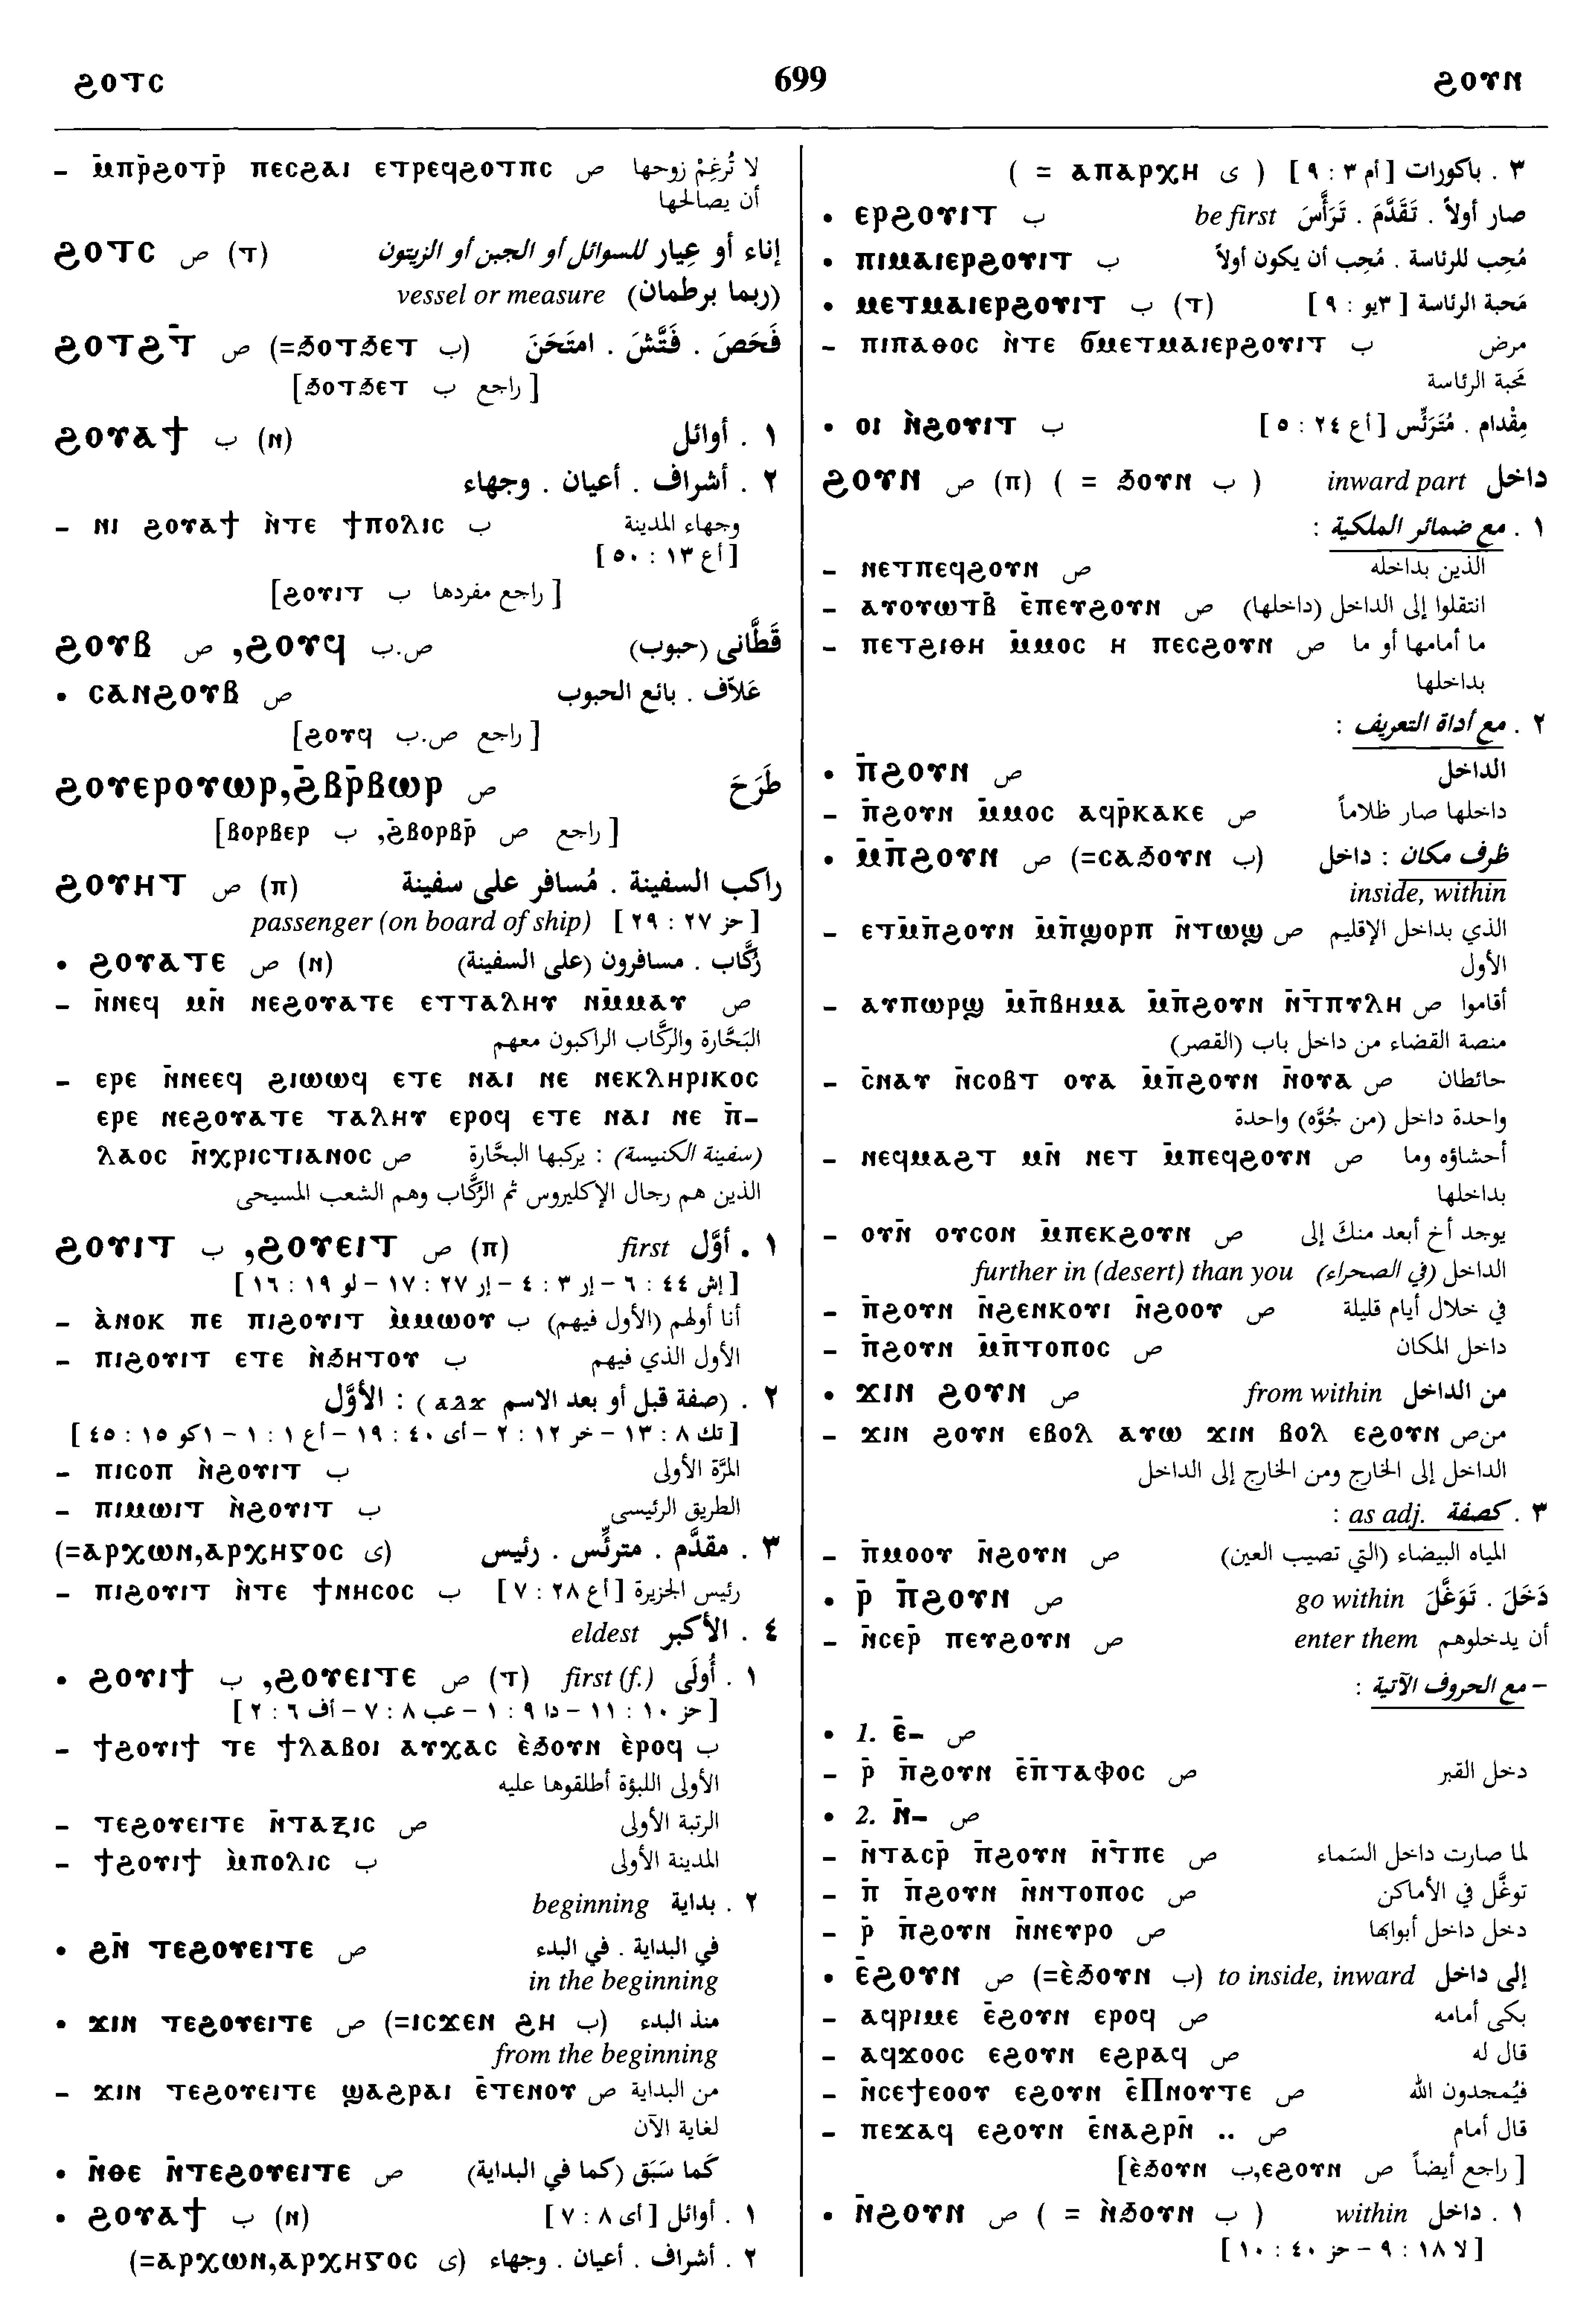 ϩⲟⲧⲥ 699 ϩⲟⲩⲛ
– ⲙ̄ⲡⲣ̄ϩⲟⲧⲣ̄ ⲡⲉⲥϩⲁⲓ ⲉⲧⲣⲉϥϩⲟⲧⲡⲥ ص لا تُرغِمْ زوجها
أن يصالحها
ϩⲟⲧⲥ ص (ⲧ) إناء أو عِيار للسوائل أو الجبن أو الزيتون
vessel or measure (ربما برطمان)
ϩⲟⲧϩⲧ̄ ص (=ϧⲟⲧϧⲉⲧ ب) فَحَصَ . فَتَّشَ . امتَحَنَ
[راجع ب ϧⲟⲧϧⲉⲧ]
ϩⲟⲩⲁϯ ب (ⲛ) ١ . أوائل
٢ . أشراف . أعيان . وجهاء
– ⲛⲓ ϩⲟⲩⲁϯ ⲛ̀ⲧⲉ ϯⲡⲟⲗⲓⲥ ب وجهاء المدينة
[أع ١٣ : ٥٠]
[راجع مفردها ب ϩⲟⲩⲓⲧ]
ϩⲟⲩⲃ ص ,ϩⲟⲩϥ ص.ب قَطَّانى (حبوب)
• ⲥⲁⲛϩⲟⲩⲃ ص عَلاَّف . بائع الحبوب
[راجع ص.ب ϩⲟⲩϥ]
ϩⲟⲩⲉⲣⲟⲩⲱⲣ,ϩ̄ⲃⲣ̄ⲃⲱⲣ ص طَرَحَ
[راجع ص ϩ̄ⲃⲟⲣⲃⲣ̄, ب ⲃⲟⲣⲃⲉⲣ]
ϩⲟⲩⲏⲧ ص (ⲡ) راكب السفينة . مُسافر على سفينة
passenger (on board of ship) [حز ٢٧ : ٢٩]
• ϩⲟⲩⲁⲧⲉ ص (ⲛ) رُكَّاب . مسافرون (على السفينة)
– ⲛ̄ⲛⲉϥ ⲙⲛ̄ ⲛⲉϩⲟⲩⲁⲧⲉ ⲉⲧⲧⲁⲗⲏⲩ ⲛⲙ̄ⲙⲁⲩ ص
البَحَّارة والرُكَّاب الراكبون معهم
– ⲉⲣⲉ ⲛ̄ⲛⲉⲉϥ ϩⲓⲱⲱϥ ⲉⲧⲉ ⲛⲁⲓ ⲛⲉ ⲛⲉⲕⲗⲏⲣⲓⲕⲟⲥ
ⲉⲣⲉ ⲛⲉϩⲟⲩⲁⲧⲉ ⲧⲁⲗⲏⲩ ⲉⲣⲟϥ ⲉⲧⲉ ⲛⲁⲓ ⲛⲉ ⲡ̄–
ⲗⲁⲟⲥ ⲛ̄ⲭⲣⲓⲥⲧⲓⲁⲛⲟⲥ ص (سفينة الكنيسة) : يركبها البحَّارة
الذين هم رجال الإكليروس ثم الرُكَّاب وهم الشعب المسيحى
ϩⲟⲩⲓⲧ ب ,ϩⲟⲩⲉⲓⲧ ص (ⲡ) first ١ . أوَّل
[إش ٤٤ : ٦ – إر ٣ : ٤ – إر ٢٧ : ١٧ – لو ١٩ : ١٦]
– ⲁ̀ⲛⲟⲕ ⲡⲉ ⲡⲓϩⲟⲩⲓⲧ ⲙ̀ⲙⲱⲟⲩ ب أنا أولهم (الأول فيهم)
– ⲡⲓϩⲟⲩⲓⲧ ⲉⲧⲉ ⲛ̀ϧⲏⲧⲟⲩ ب الأول الذي فيهم
٢ . (صفة قبل أو بعد الاسم ⲁⲗϫ) : الأوَّل
[تك ٨ : ١٣ – خر ١٢ : ٢ – أى ٤٠ : ١٩ – أع ١ : ١ – ١كو ١٥ : ٤٥]
– ⲡⲓⲥⲟⲡ ⲛ̀ϩⲟⲩⲓⲧ ب المرَّة الأولى
– ⲡⲓⲙⲱⲓⲧ ⲛ̀ϩⲟⲩⲓⲧ ب الطريق الرئيسى
(=ⲁⲣⲭⲱⲛ,ⲁⲣⲭⲏⲅⲟⲥ ى) ٣ . مقدَّم . مترئِّس . رئيس
– ⲡⲓϩⲟⲩⲓⲧ ⲛ̀ⲧⲉ ϯⲛⲏⲥⲟⲥ ب رئيس الجزيرة [أع ٢٨ : ٧]
eldest ٤ . الأكبر
• ϩⲟⲩⲓϯ ب ,ϩⲟⲩⲉⲓⲧⲉ ص (ⲧ) first (f.) ١ . أُولَى
[حز ١٠ : ١١ – دا ٩ : ١ – عب ٨ : ٧ – أف ٦ : ٢]
– ϯϩⲟⲩⲓϯ ⲧⲉ ϯⲗⲁⲃⲟⲓ ⲁⲩⲭⲁⲥ ⲉ̀ϧⲟⲩⲛ ⲉ̀ⲣⲟϥ ب
الأولى اللبؤة أطلقوها عليه
– ⲧⲉϩⲟⲩⲉⲓⲧⲉ ⲛ̄ⲧⲁⲝⲓⲥ ص الرتبة الأولى
– ϯϩⲟⲩⲓϯ ⲙ̀ⲡⲟⲗⲓⲥ ب المدينة الأولى
beginning ٢ . بداية
• ϩⲛ̄ ⲧⲉϩⲟⲩⲉⲓⲧⲉ ص في البداية . في البدء
in the beginning
• ϫⲓⲛ ⲧⲉϩⲟⲩⲉⲓⲧⲉ ص (=ⲓⲥϫⲉⲛ ϩⲏ ب) منذ البدء
from the beginning
– ϫⲓⲛ ⲧⲉϩⲟⲩⲉⲓⲧⲉ ϣⲁϩⲣⲁⲓ ⲉ̄ⲧⲉⲛⲟⲩ ص من البداية
لغاية الآن
• ⲛ̄ⲑⲉ ⲛ̄ⲧⲉϩⲟⲩⲉⲓⲧⲉ ص كَما سَبَق (كما في البداية)
• ϩⲟⲩⲁϯ ب (ⲛ) ١ . أوائل [أى ٨ : ٧]
(=ⲁⲣⲭⲱⲛ,ⲁⲣⲭⲏⲅⲟⲥ ى) ٢ . أشراف . أعيان . وجهاء
٣ . باكورات [أم ٣ : ٩] (ى ⲁⲡⲁⲣⲭⲏ =)
• ⲉⲣϩⲟⲩⲓⲧ ب be first صار أولاً . تَقَدَّمَ . تَرَأَّسَ
• ⲡⲓⲙⲁⲓⲉⲣϩⲟⲩⲓⲧ ب مُحِب للرئاسة . مُحِب أن يكون أولاً
• ⲙⲉⲧⲙⲁⲓⲉⲣϩⲟⲩⲓⲧ ب (ⲧ) مَحبة الرئاسة [٣يو : ٩]
– ⲡⲓⲡⲁⲑⲟⲥ ⲛ̀ⲧⲉ ϭⲙⲉⲧⲙⲁⲓⲉⲣϩⲟⲩⲓⲧ ب مرض
مَحبة الرئاسة
• ⲟⲓ ⲛ̀ϩⲟⲩⲓⲧ ب مِقْدام . مُتَرَئِّس [أع ٢٤ : ٥]
ϩⲟⲩⲛ ص (ⲡ) ( = ϧⲟⲩⲛ ب ) inward part داخل
١ . مع ضمائر الملكية :
– ⲛⲉⲧⲡⲉϥϩⲟⲩⲛ ص الذين بداخله
– ⲁⲩⲟⲩⲱⲧⲃ̄ ⲉ̄ⲡⲉⲩϩⲟⲩⲛ ص انتقلوا إلى الداخل (داخلها)
– ⲡⲉⲧϩⲓⲑⲏ ⲙ̄ⲙⲟⲥ ⲏ ⲡⲉⲥϩⲟⲩⲛ ص ما أمامها أو ما
بداخلها
٢ . مع أداة التعريف :
• ⲡ̄ϩⲟⲩⲛ ص الداخل
– ⲡ̄ϩⲟⲩⲛ ⲙ̄ⲙⲟⲥ ⲁϥⲣ̄ⲕⲁⲕⲉ ص داخلها صار ظلاماً
• ⲙ̄ⲡ̄ϩⲟⲩⲛ ص (=ⲥⲁϧⲟⲩⲛ ب) ظرف مكان : داخل
inside, within
– ⲉⲧⲙ̄ⲡ̄ϩⲟⲩⲛ ⲙ̄ⲡ̄ϣⲟⲣⲡ ⲛ̄ⲧⲱϣ ص الذي بداخل الإقليم
الأول
– ⲁⲩⲡⲱⲣϣ ⲙ̄ⲡ̄ⲃⲏⲙⲁ ⲙ̄ⲡ̄ϩⲟⲩⲛ ⲛ̄ⲧ̄ⲡⲩⲗⲏ ص أقاموا
منصة القضاء من داخل باب (القصر)
– ⲥ̄ⲛⲁⲩ ⲛ̄ⲥⲟⲃⲧ ⲟⲩⲁ ⲙ̄ⲡ̄ϩⲟⲩⲛ ⲛ̄ⲟⲩⲁ ص حائطان
واحدة داخل (من جُوَّه) واحدة
– ⲛⲉϥⲙⲁϩⲧ ⲙⲛ̄ ⲛⲉⲧ ⲙ̄ⲡⲉϥϩⲟⲩⲛ ص أحشاؤه وما
بداخلها
– ⲟⲩⲛ̄ ⲟⲩⲥⲟⲛ ⲙ̄ⲡⲉⲕϩⲟⲩⲛ ص يوجد أخ أبعد منكَ إلى
further in (desert) than you الداخل (في الصحراء)
– ⲡ̄ϩⲟⲩⲛ ⲛ̄ϩⲉⲛⲕⲟⲩⲓ ⲛ̄ϩⲟⲟⲩ ص في خلال أيام قليلة
– ⲡ̄ϩⲟⲩⲛ ⲙ̄ⲡ̄ⲧⲟⲡⲟⲥ ص داخل المكان
• ϫⲓⲛ ϩⲟⲩⲛ ص from within من الداخل
– ϫⲓⲛ ϩⲟⲩⲛ ⲉⲃⲟⲗ ⲁⲩⲱ ϫⲓⲛ ⲃⲟⲗ ⲉϩⲟⲩⲛ ص من
الداخل إلى الخارج ومن الخارج إلى الداخل
٣ . كصفة as adj. :
– ⲡ̄ⲙⲟⲟⲩ ⲛ̄ϩⲟⲩⲛ ص المياه البيضاء (التي تصيب العين)
• ⲣ̄ ⲡ̄ϩⲟⲩⲛ ص go within دَخَلَ . تَوَغَّلَ
– ⲛ̄ⲥⲉⲣ̄ ⲡⲉⲩϩⲟⲩⲛ ص enter them أن يدخلوهم
– مع الحروف الآتية :
• 1. ⲉ̄– ص
– ⲣ̄ ⲡ̄ϩⲟⲩⲛ ⲉ̄ⲡ̄ⲧⲁⲫⲟⲥ ص دخل القبر
• 2. ⲛ̄– ص
– ⲛ̄ⲧⲁⲥⲣ̄ ⲡ̄ϩⲟⲩⲛ ⲛ̄ⲧ̄ⲡⲉ ص لما صارت داخل السَماء
– ⲡ̄ ⲡ̄ϩⲟⲩⲛ ⲛ̄ⲛⲧⲟⲡⲟⲥ ص توغَّل في الأماكن
– ⲣ̄ ⲡ̄ϩⲟⲩⲛ ⲛ̄ⲛⲉⲩⲣⲟ ص دخل داخل أبوابها
• ⲉ̄ϩⲟⲩⲛ ص (=ⲉ̀ϧⲟⲩⲛ ب) to inside, inward إلى داخل
– ⲁϥⲣⲓⲙⲉ ⲉ̄ϩⲟⲩⲛ ⲉⲣⲟϥ ص بكى أمامه
– ⲁϥϫⲟⲟⲥ ⲉϩⲟⲩⲛ ⲉϩⲣⲁϥ ص قال له
– ⲛ̄ⲥⲉϯⲉⲟⲟⲩ ⲉϩⲟⲩⲛ ⲉ̄Ⲡⲛⲟⲩⲧⲉ ص فيُمجدون الله
– ⲡⲉϫⲁϥ ⲉϩⲟⲩⲛ ⲉ̄ⲛⲁϩⲣⲛ̄ .. ص قال أمام
[راجع أيضاً ص ⲉϩⲟⲩⲛ,ب ⲉ̀ϧⲟⲩⲛ]
• ⲛ̄ϩⲟⲩⲛ ص ( = ⲛ̀ϧⲟⲩⲛ ب ) within ١ . داخل
[لا ١٨ : ٩ – حز ٤٠ : ١٠]